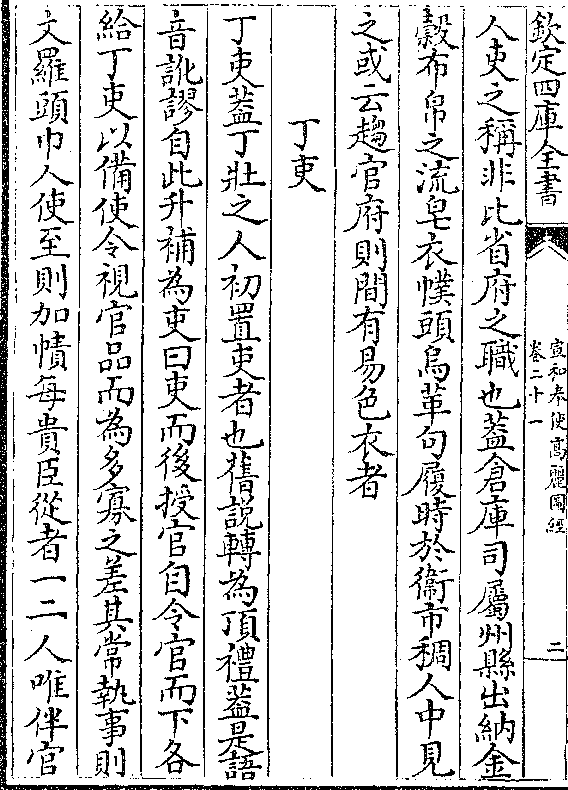 欽定四庫全書
宣和奉使高麗圖經
卷二十一
二
人吏之稱非比省府之職也蓋倉庫司屬州縣出納金
穀布帛之流皂衣幞頭烏革句履時於衢市稠人中見
之或云趨官府則間有易色衣者
丁吏
丁吏蓋丁壯之人初置吏者也舊説轉為頂禮蓋是語
音訛謬自此升補為吏曰吏而後授官自令官而下各
給丁吏以備使令視官品而為多寡之差其常執事則
文羅頭巾人使至則加幘每貴臣從者一二人唯伴官